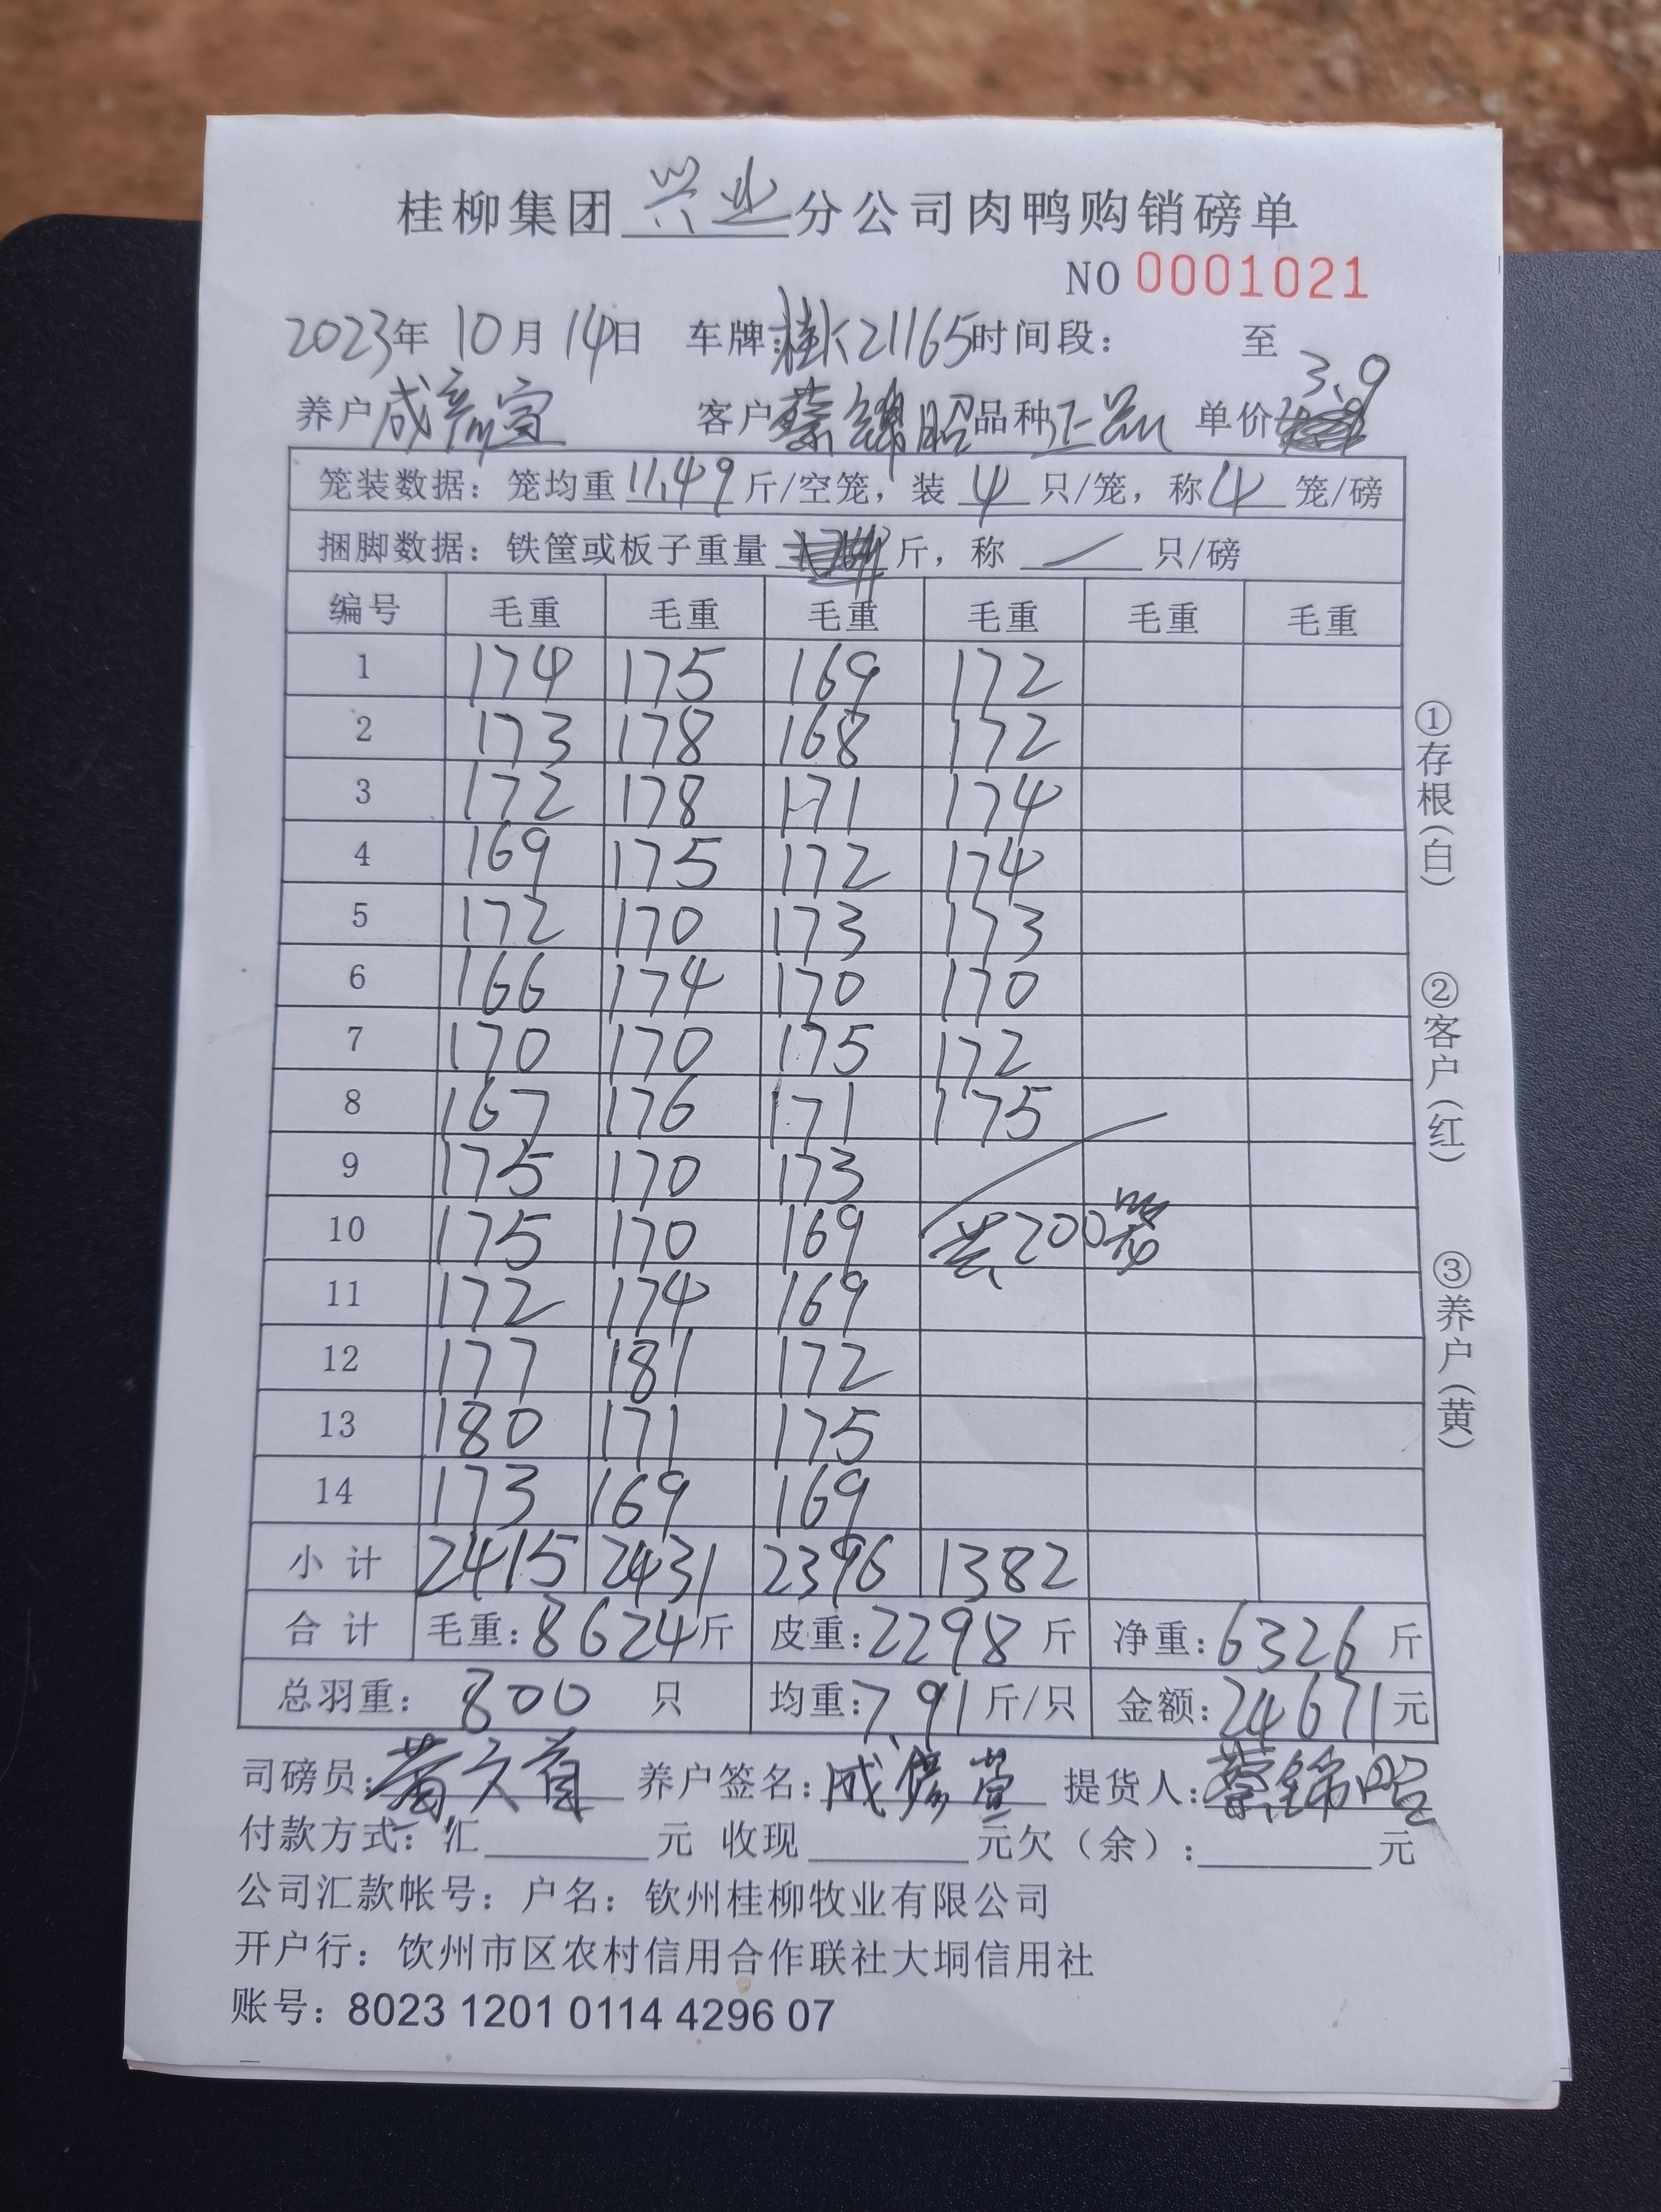 桂柳集团兴业分公司肉鸭购销磅单
NO 0001021
2023年 10月 14日 车牌:桂K21165时间段: 至
养户成彦宣 客户蔡锦昭 品种正品 单价3.9
笼装数据：笼均重 11.49 斤/空笼，装 4 只/笼，称 4 笼/磅
捆脚数据：铁筐或板子重量 斤，称 — 只/磅
编号 毛重 毛重 毛重 毛重 毛重 毛重
1 174 175 169 172
2 173 178 168 172
3 172 178 171 174
4 169 175 172 174
5 172 170 173 173
6 166 174 170 170
7 170 170 175 172
8 167 176 171 175
9 175 170 173
10 175 170 169 共200笼
11 172 174 169
12 177 181 172
13 180 171 175
14 173 169 169
小计 2415 2431 2396 1382
合计 毛重:8624斤 皮重:2298斤 净重:6326斤
总羽重: 800 只 均重:7.91斤/只 金额:24671元
司磅员: 养户签名: 成 提货人:蔡锦昭
付款方式：汇 元 收现 元欠（余）: 元
公司汇款帐号：户名：钦州桂柳牧业有限公司
开户行：饮州市区农村信用合作联社大垌信用社
账号：8023 1201 0114 4296 07
①存根(白)
②客户(红)
③养户(黄)